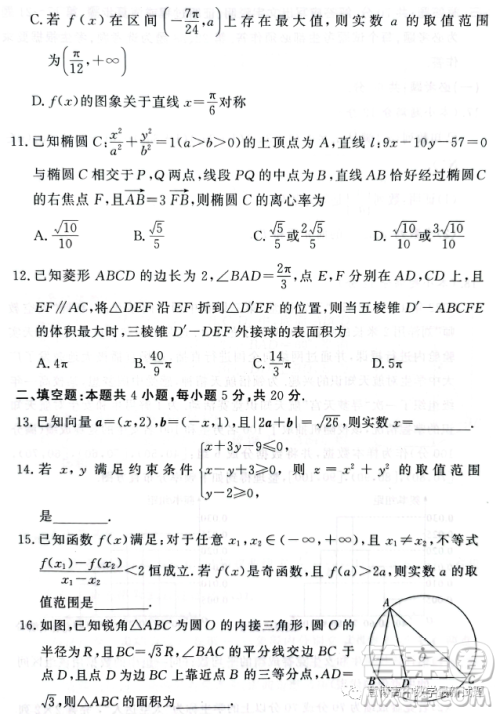 C.若 f(x) 在区间 (-7π/24, a) 上存在最大值，则实数 a 的取值范围
为(π/12, +∞)
D. f(x)的图象关于直线 x=π/6 对称
11.已知椭圆 C: x²/a² + y²/b² =1(a>b>0)的上顶点为 A，直线 l: 9x-10y-57=0
与椭圆 C 相交于 P，Q 两点，线段 PQ 的中点为 B，直线 AB 恰好经过椭圆 C
的右焦点 F，且→AB=3 →FB，则椭圆 C 的离心率为
A. √10/10 B. √5/5 C. √5/5 或 2√5/5 D. √10/10 或 3√10/10
12.已知菱形 ABCD 的边长为 2，∠BAD=2π/3，点 E，F 分别在 AD，CD 上，且
EF∥AC，将△DEF 沿 EF 折到△D′EF 的位置，则当五棱锥 D′-ABCFE
的体积最大时，三棱锥 D′-DEF 外接球的表面积为
A. 4π B. 40/9 π C. 14/3 π D. 5π
二、填空题：本题共 4 小题，每小题 5 分，共 20 分.
13.已知向量 a=(x,2)，b=(-x,1)，且|2a+b|=√26，则实数 x=______.
14.若 x，y 满足约束条件 {x+3y-9≤0, x-y+3≥0, y-2≥0, 则 z=x²+y² 的取值范围
是______.
15.已知函数 f(x)满足：对于任意 x₁,x₂∈(-∞,+∞)，且 x₁≠x₂，不等式
(f(x₁)-f(x₂))/(x₁-x₂)<2 恒成立.若 f(x)是奇函数，且 f(a)>2a，则实数 a 的取
值范围是______.
16.如图，已知锐角△ABC 为圆 O 的内接三角形，圆 O 的
半径为 R，且 BC=√3 R，∠BAC 的平分线交边 BC 于
点 D，且点 D 为边 BC 上靠近点 B 的三等分点，AD=
√3，则△ABC 的面积为______.
A
B
D
C